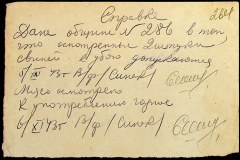 Справка
Дана общине N 286 в том,
что осмотренные 2 штуки
свиней к убою допускаются
5/XI 43г В/ф /Синек/
Мясо осмотрено
К употреблению годное
6/XI 43г В/ф /Синек/